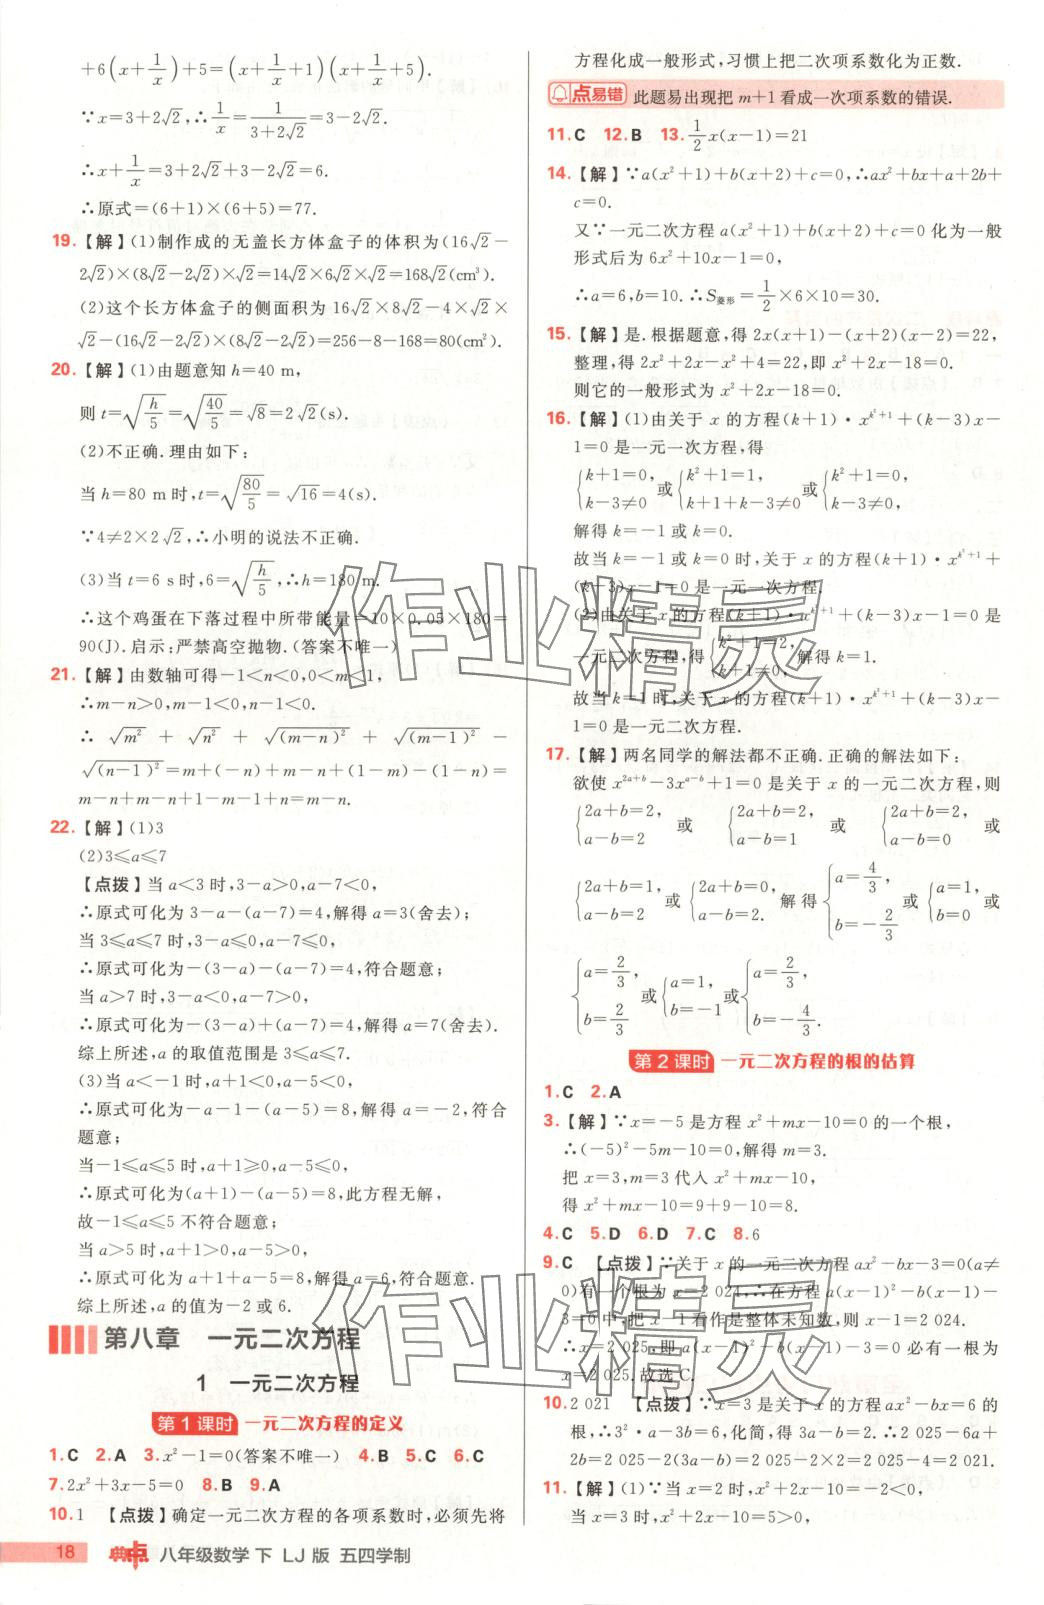 +6(x+1/x)+5=(x+1/x+1)(x+1/x+5).
∵x=3+2√2,∴1/x=1/(3+2√2)=3-2√2.
∴x+1/x=3+2√2+3-2√2=6.
∴原式=(6+1)×(6+5)=77.
19.【解】(1)制作成的无盖长方体盒子的体积为(16√2-
2√2)×(8√2-2√2)×√2=14√2×6√2×√2=168√2(cm³).
(2)这个长方体盒子的侧面积为 16√2×8√2-4×√2×
√2-(16√2-2√2)×(8√2-2√2)=256-8-168=80(cm²).
20.【解】(1)由题意知 h=40 m,
则 t=√(h/5)=√(40/5)=√8=2√2(s).
(2)不正确.理由如下:
当 h=80 m 时,t=√(80/5)=√16=4(s).
∵4≠2×2√2,∴小明的说法不正确.
(3)当 t=6 s时,6=√(h/5),∴h=180 m.
∴这个鸡蛋在下落过程中所带能量=10×0.05×180=
90(J).启示:严禁高空抛物.(答案不唯一)
21.【解】由数轴可得-1<n<0,0<m<1,
∴m-n>0,m-1<0,n-1<0.
∴ √m² + √n² + √(m-n)² + √(m-1)² -
√(n-1)²=m+(-n)+(m-n)+(1-m)-(1-n)=
m-n+m-n+1-m-1+n=m-n.
22.【解】(1)3
(2)3≤a≤7
【点拨】当 a<3 时,3-a>0,a-7<0,
∴原式可化为 3-a-(a-7)=4,解得 a=3(舍去);
当 3≤a≤7 时,3-a≤0,a-7≤0,
∴原式可化为-(3-a)-(a-7)=4,符合题意;
当 a>7 时,3-a<0,a-7>0,
∴原式可化为-(3-a)+(a-7)=4,解得 a=7(舍去).
综上所述,a 的取值范围是 3≤a≤7.
(3)当 a<-1 时,a+1<0,a-5<0,
∴原式可化为-(a+1)-(a-5)=8,解得 a=-2,符合
题意;
当-1≤a≤5 时,a+1≥0,a-5≤0,
∴原式可化为(a+1)-(a-5)=8,此方程无解,
故-1≤a≤5 不符合题意;
当 a>5 时,a+1>0,a-5>0,
∴原式可化为 a+1+a-5=8,解得 a=6,符合题意.
综上所述,a 的值为-2 或 6.
第八章 一元二次方程
1 一元二次方程
第 1 课时 一元二次方程的定义
1.C 2.A 3.x²-1=0(答案不唯一) 4.B 5.C 6.C
7.2x²+3x-5=0 8.B 9.A
10.1 【点拨】确定一元二次方程的各项系数时,必须先将
方程化成一般形式,习惯上把二次项系数化为正数.
点易错 此题易出现把 m+1 看成一次项系数的错误.
11.C 12.B 13.1/2x(x-1)=21
14.【解】∵a(x²+1)+b(x+2)+c=0,∴ax²+bx+a+2b+
c=0.
又∵一元二次方程 a(x²+1)+b(x+2)+c=0 化为一般
形式后为 6x²+10x-1=0,
∴a=6,b=10.∴S菱形=1/2×6×10=30.
15.【解】是.根据题意,得 2x(x+1)-(x+2)(x-2)=22,
整理,得 2x²+2x-x²+4=22,即 x²+2x-18=0.
则它的一般形式为 x²+2x-18=0.
16.【解】(1)由关于 x 的方程(k+1)·x^(k²+1)+(k-3)x-
1=0 是一元一次方程,得
{k+1=0, k-3≠0, 或 {k²+1=1, k+1+k-3≠0 或 {k²+1=0, k-3≠0,
解得 k=-1 或 k=0.
故当 k=-1 或 k=0 时,关于 x 的方程(k+1)·x^(k²+1)+
(k-3)x-1=0 是一元一次方程.
(2)由关于 x 的方程(k+1)·x^(k²+1)+(k-3)x-1=0 是
一元二次方程,得 {k²+1=2, k+1≠0, 解得 k=1.
故当 k=1 时,关于 x 的方程(k+1)·x^(k²+1)+(k-3)x-
1=0 是一元二次方程.
17.【解】两名同学的解法都不正确.正确的解法如下:
欲使 x^(2a+b)-3x^(a-b)+1=0 是关于 x 的一元二次方程,则
{2a+b=2, a-b=2 或 {2a+b=2, a-b=1 或 {2a+b=2, a-b=0 或
{2a+b=1, a-b=2 或 {2a+b=0, a-b=2. 解得 {a=4/3, b=-2/3 或 {a=1, b=0
或 {a=2/3, b=2/3 或 {a=1, b=-1 或 {a=2/3, b=-4/3.
第 2 课时 一元二次方程的根的估算
1.C 2.A
3.【解】∵x=-5 是方程 x²+mx-10=0 的一个根,
∴(-5)²-5m-10=0,解得 m=3.
把 x=3,m=3 代入 x²+mx-10,
得 x²+mx-10=9+9-10=8.
4.C 5.D 6.D 7.C 8.6
9.C 【点拨】∵关于 x 的一元二次方程 ax²-bx-3=0(a≠
0)有一个根为 x=2 024,∴在方程 a(x-1)²-b(x-1)-
3=0 中,把 x-1 看作是整体未知数,则 x-1=2 024.
∴x=2 025,即 a(x-1)²-b(x-1)-3=0 必有一根为
x=2 025.故选 C.
10.2 021 【点拨】∵x=3 是关于 x 的方程 ax²-bx=6 的
根,∴3²·a-3b=6,化简,得 3a-b=2.∴2 025-6a+
2b=2 025-2(3a-b)=2 025-2×2=2 025-4=2 021.
11.【解】(1)∵当 x=2 时,x²+2x-10=-2<0,
18 典中点 八年级数学 下 LJ 版 五四学制
作业精灵
作业精灵